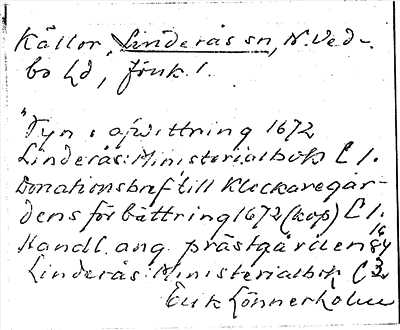 Källor, Linderås sn, N. Ved-
bo hd, Jönk. l.
"Syn o afwittring 1672
Linderås: Ministerialbok C 1.
Donationsbref till Klockaregår-
dens förbättring 1672 (kop) C 1.
Handl. ang. prästgården 1684
Linderås: Ministerialbok C 3.
Erik Lönnerholm